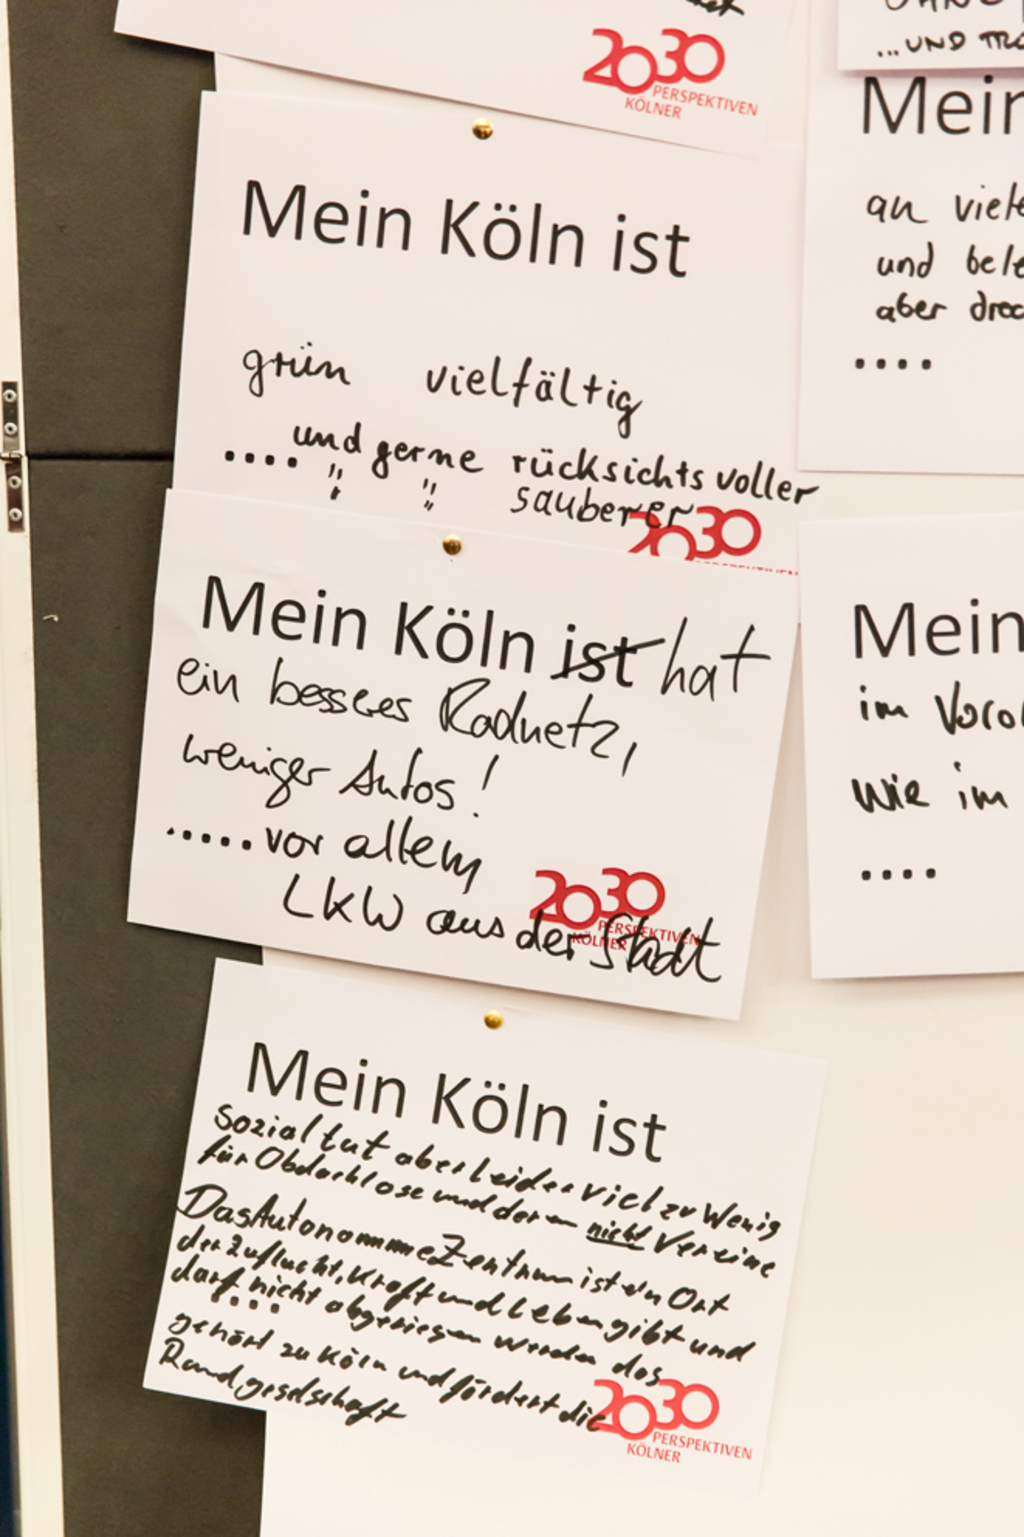 2030
PERSPEKTIVEN
KÖLNER
Mein Köln ist
grün vielfältig
.... und gerne rücksichtsvoller
" " sauberer
2030
Mein Köln ist hat
ein besseres Radnetz,
weniger Autos!
..... vor allem
LKW aus der Stadt
2030
PERSPEKTIVEN
KÖLNER
Mein Köln ist
Sozial tut aber leider viel zu wenig
für Obdachlose und deren nicht Vereine
Das Autonomme Zentrum ist ein Ort
der Zuflucht, Kraft und Leben gibt und
darf nicht abgeriessen werden das
....
gehört zu Köln und fördert die
Randgeselschaft
2030
PERSPEKTIVEN
KÖLNER
...UND
Mein
an viele
und bele
aber drec
....
Mein
im Voro
wie im
....